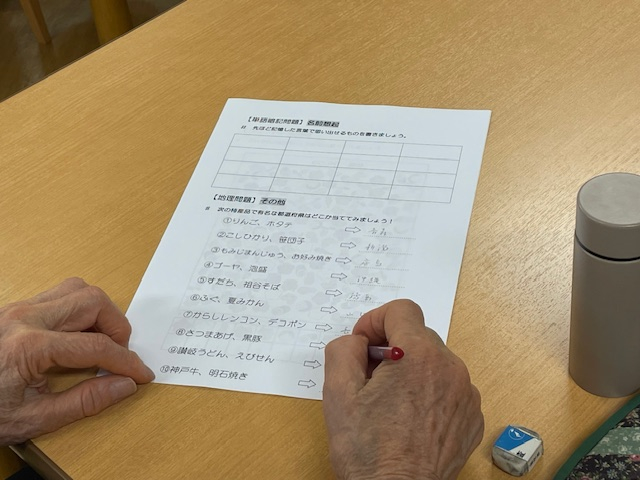 【単語暗記問題】名前想起
※ 先ほど記憶した言葉で思い出せるものを書きましょう。
【地理問題】その他
※ 次の特産品で有名な都道府県はどこか当ててみましょう！
①りんご、ホタテ ⇨ 青森
②こしひかり、笹団子 ⇨
③もみじまんじゅう、お好み焼き ⇨
④ゴーヤ、泡盛 ⇨ 沖縄
⑤すだち、祖谷そば ⇨
⑥ふぐ、夏みかん ⇨
⑦からしレンコン、デコポン ⇨
⑧さつまあげ、黒豚 ⇨
⑨讃岐うどん、えびせん ⇨
⑩神戸牛、明石焼き ⇨